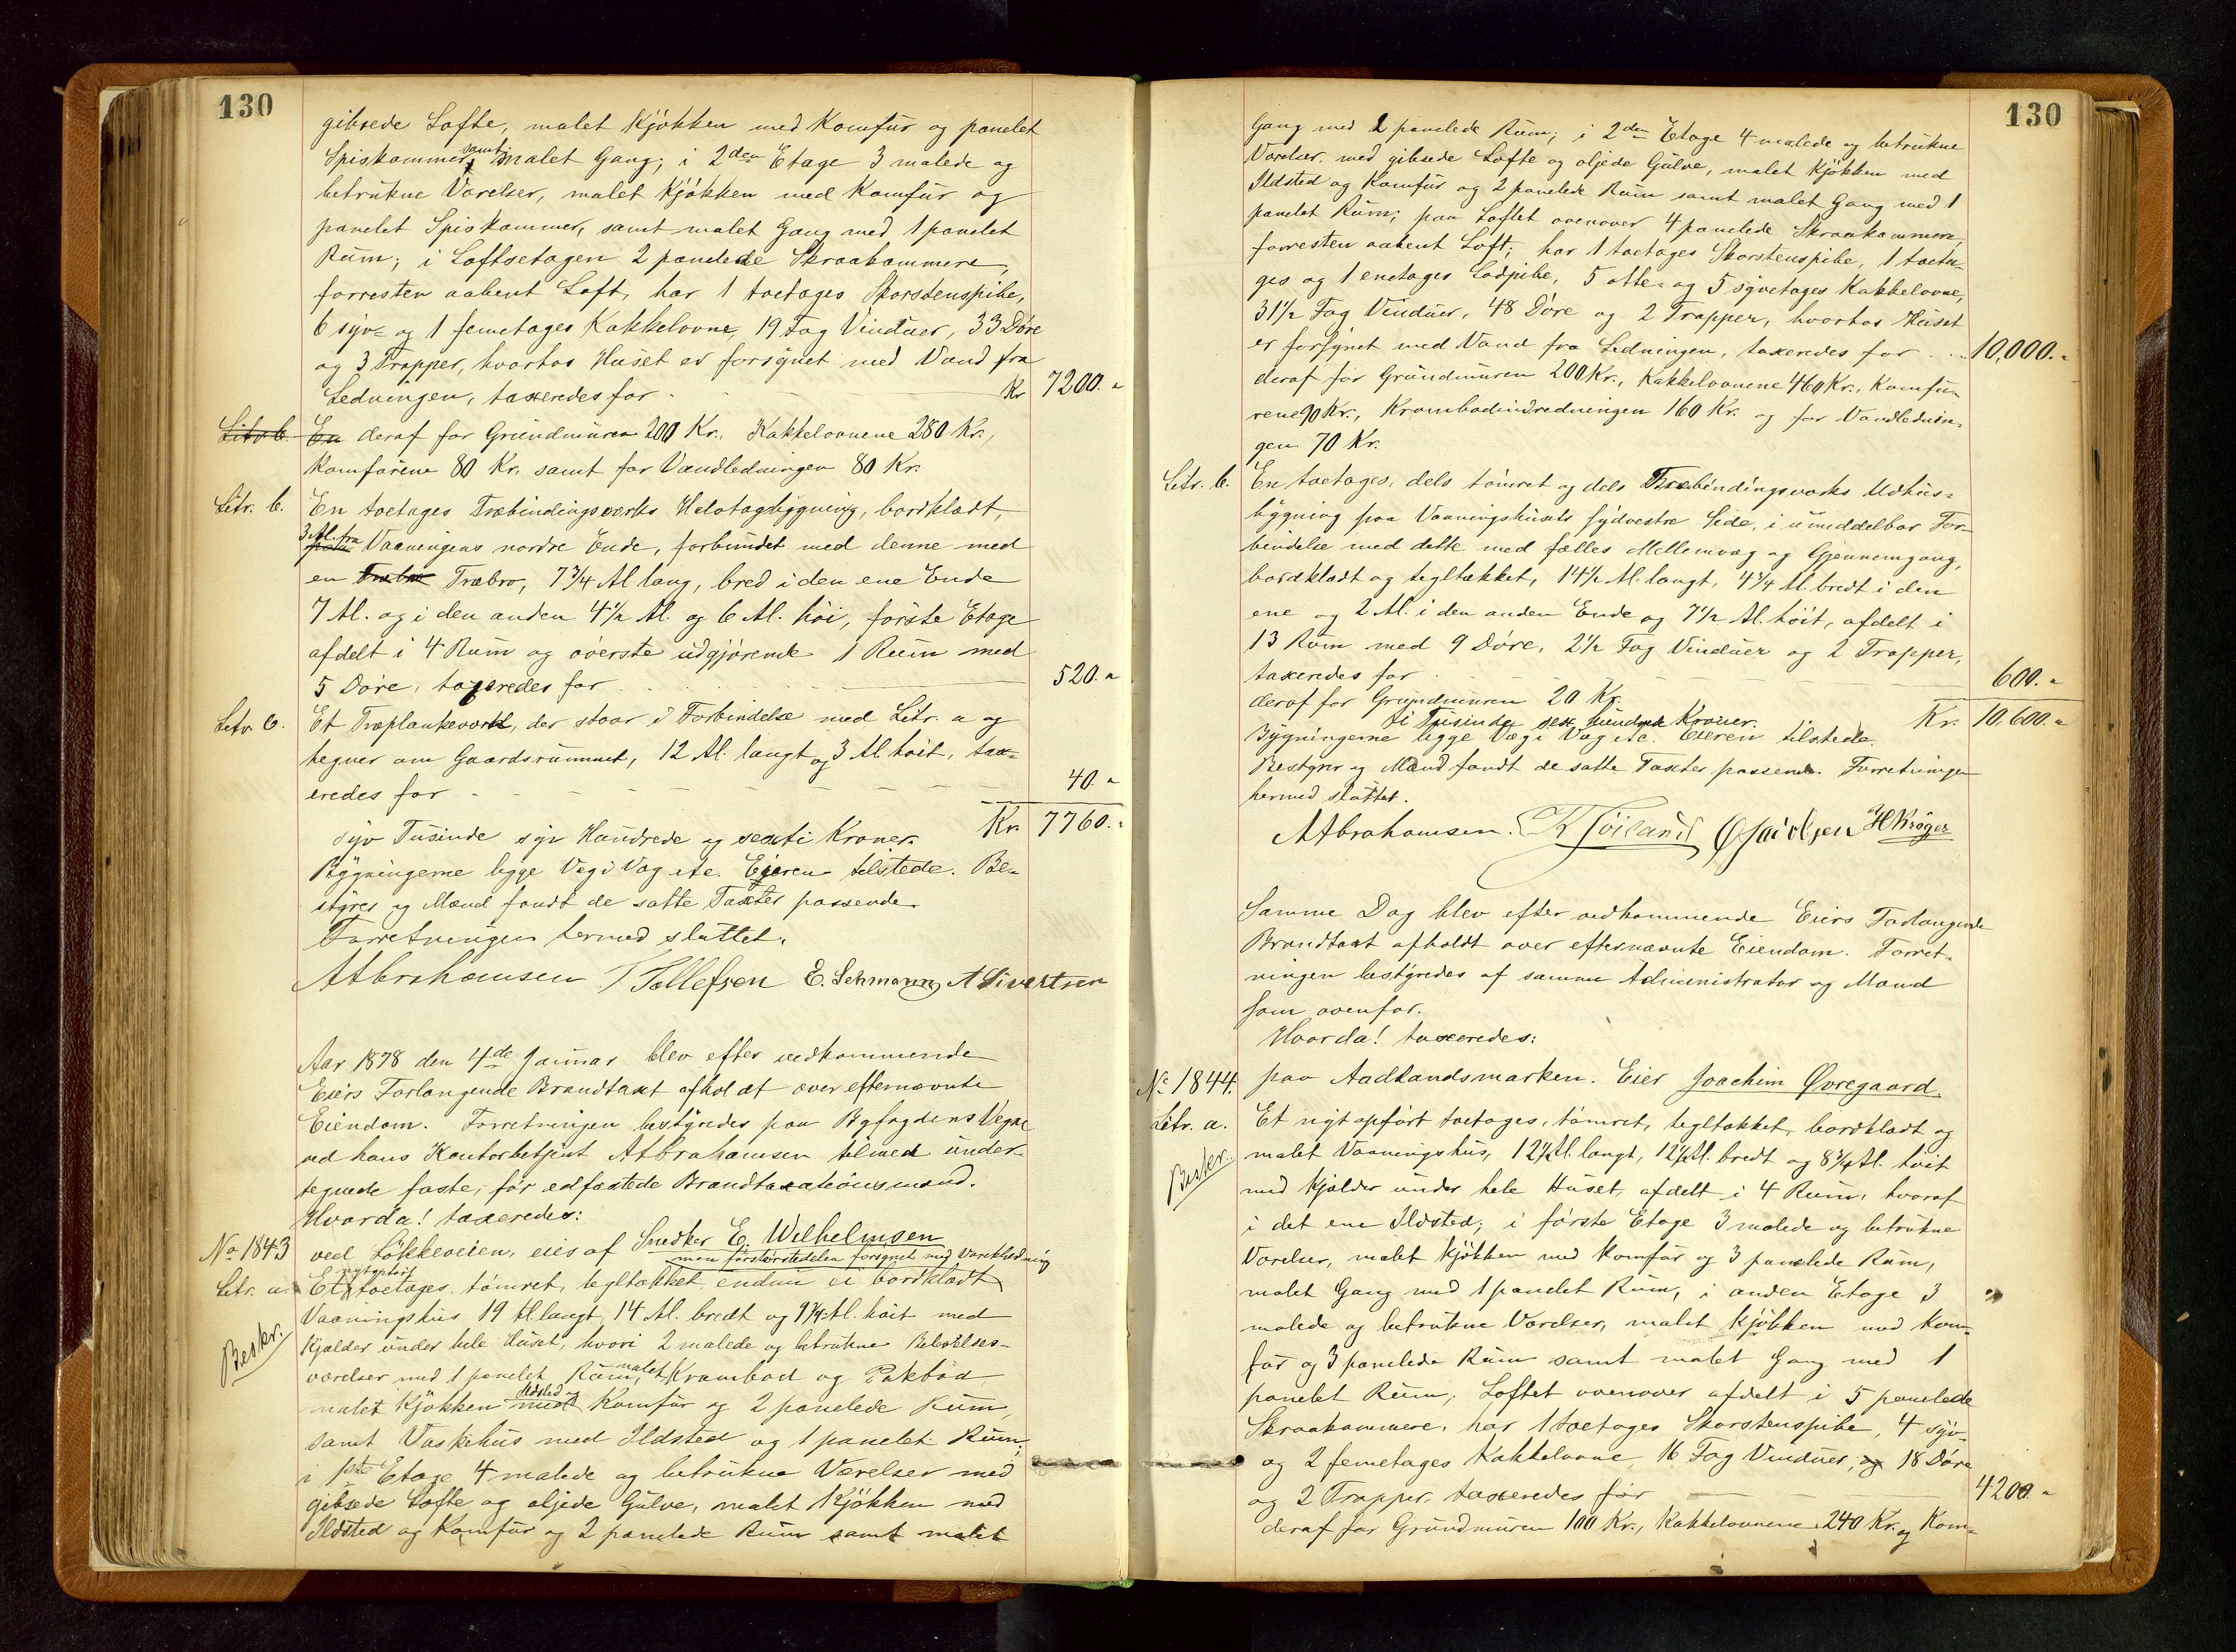 130
gibsede Lofte, malet Kjøkken med Komfur og panelet
Spiskammer, samt malet Gang; i 2den Etage 3 malede og
betrukne Værelser, malet Kjøkken med Komfur og
panelet Spiskammer, samt malet Gang med 1 panelet
Rum; i Loftsetagen 2 panelede Skraakammere,
forresten aabent Loft, har 1 toetages Skorstenspibe,
6 syv- og 1 femetages Kakkelovne, 19 Fag Vinduer, 33 Døre
og 3 Trapper, hvorhos Huset er forsynet med Vand fra
Ledningen, taxeredes for - Kr 7200. "
Litr b. En deraf for Grundmuren 200 Kr., Kakkelovnene 280 Kr.,
Komfurene 80 Kr. samt for Vandledningen 80 Kr.
Litr. b. En toetages Træbindingsværks Halvtagbygning, bordklædt,
3 Al. fra Vaaningens nordre Ende, forbundet med denne med
en Træbro Træbro, 7 3/4 Al lang, bred i den ene Ende
7 Al. og i den anden 4 1/2 Al. og 6 Al. høi, første Etage
afdelt i 4 Rum og øverste udgjørende 1 Rum med
5 Døre, taxeredes for 520. "
Litr. c. Et Træplankeværk, der staar i Forbindelse med Litr. a og
hegner om Gaardsrummet, 12 Al. langt og 3 Al høit, tax-
eredes for - - - 40. "
Kr. 7760. "
Syv Tusinde syv Hundrede og sexti Kroner.
Bygningerne ligge Væg i Væg etc. Eieren tilstede. Be-
styrer og Mænd fandt de satte Taxter passende.
Forretningen hermed sluttet.
A Abrahamsen T Tollefsen E. Lehmann A Sivertsen
Aar 1878 den 4de Januar blev efter vedkommende
Eiers Forlangende Brandtaxt afholdt over efternævnte
Eiendom. Forretningen bestyredes paa Byfogdens Vegne
ved hans Kontorbetjent A Abrahamsen tilmed under-
tegnede faste, før edfæstede Brandtaxationsmænd.
Hvorda! taxeredes:
No 1843 ved Løkkeveien, eies af Snedker E. Wilhelmsen
men størstedelen forsynet med Vareklædning
Litr. a. Et nyt opført toetages, tømret, tegltækket endnu ei bordklædt
Vaaningshus 19 Al. langt, 14 Al. bredt og 9 3/4 Al. høit med
Beskr.
Kjælder under hele Huset, hvori 2 malede og betrukne Beboelses-
værelser med 1 panelet Rum, malet Krambod og Pakbod
malet Kjøkken med Ildsted og Komfur og 2 panelede Rum,
samt Vaskehus med Ildsted og 1 panelet Rum;
i 1ste Etage 4 malede og betrukne Værelser med
gibsede Lofte og oljede Gulve, malet Kjøkken med
Ildsted og Komfur og 2 panelede Rum samt malet
130
Gang med 2 panelede Rum; i 2den Etage 4 malede og betrukne
Værelser med gibsede Lofte og oljede Gulve, malet Kjøkken med
Ildsted og Komfur og 2 panelede Rum samt malet Gang med 1
panelet Rum; paa Loftet ovenover 4 panelede Skraakammere,
forresten aabent Loft; har 1 toetages Skorstenspibe, 1 toeta-
ges og 1 enetages Lodpibe, 5 otte- og 5 syvetages Kakkelovne,
31 1/2 Fag Vinduer, 48 Døre og 2 Trapper, hvorhos Huset
er forsynet med Vand fra Ledningen, taxeredes for . . . 10,000. "
deraf for Grundmuren 200 Kr., Kakkelovnene 460 Kr., Komfu-
rene 90 Kr., Krambodindredningen 160 Kr. og for Vandlednin-
gen 70 Kr.
Litr. b. En toetages, dels tømret og dels Træbindingsværks Udhus-
bygning paa Vaaningshusets sydvestre Side, i umiddelbar For-
bindelse med dette med fælles Mellemvæg og Gjennemgang,
bordklædt og tegltækket, 14 1/2 Al. langt, 4 3/4 Al. bredt i den
ene og 2 Al. i den anden Ende og 7 1/2 Al. høit, afdelt i
13 Rum med 9 Døre, 2 1/2 Fag Vinduer og 2 Trapper,
taxeredes for - - - 600. "
deraf for Grundmuren 20 Kr.
Kr. 10.600. "
Ti Tusinde sex hundrede Kroner.
Bygningerne ligge Væg i Væg etc. Eieren tilstede.
Bestyrer og Mænd fandt de satte Taxter passende. Forretningen
hermed sluttet.
A Abrahamsen. H Krøger
Samme Dag blev efter vedkommende Eiers Forlangende
Brandtaxt afholdt over efternævnte Eiendom. Forret-
ningen bestyredes af samme Administrator og Mænd
som ovenfor.
Hvorda! taxeredes:
No 1844. paa Aadlandsmarken. Eier Joachim Øvregaard.
Litr. a. Et nyt opført toetages, tømret, tegltækket, bordklædt og
malet Vaaningshus, 12 1/2 Al. langt, 12 1/2 Al. bredt og 8 3/4 Al. høit
Beskr.
med Kjælder under hele Huset, afdelt i 4 Rum, hvoraf
i det ene Ildsted; i første Etage 3 malede og betrukne
Værelser, malet Kjøkken med Komfur og 3 panelede Rum,
malet Gang med 1 panelet Rum, i anden Etage 3
malede og betrukne Værelser, malet Kjøkken med Kom-
fur og 3 panelede Rum samt malet Gang med 1
panelet Rum; Loftet ovenover afdelt i 5 panelede
Skraakammere, har 1 toetages Skorstenspibe, 4 syv-
og 2 femetages Kakkelovne 16 Fag Vinduer, og 18 Døre
og 2 Trapper, taxeredes for - - - 4200. "
deraf for Grundmuren 100 Kr., Kakkelovnene 240 Kr. og Kom-